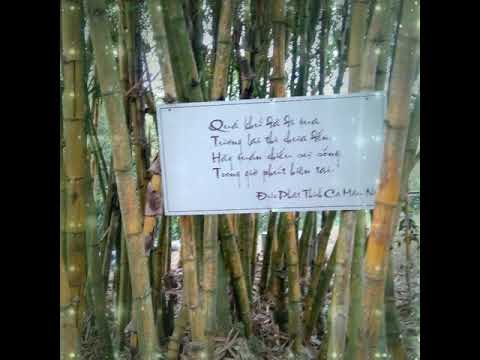 Quá khứ đã đi qua
Tương lai thì chưa đến
Hãy quán chiếu sự sống
Trong giờ phút hiện tại.
Đức Phật Thích Ca Mâu Ni